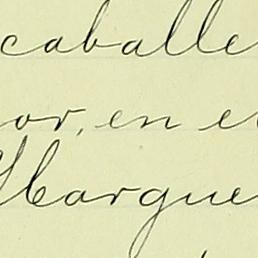 caballe
or, en e
Ibargue